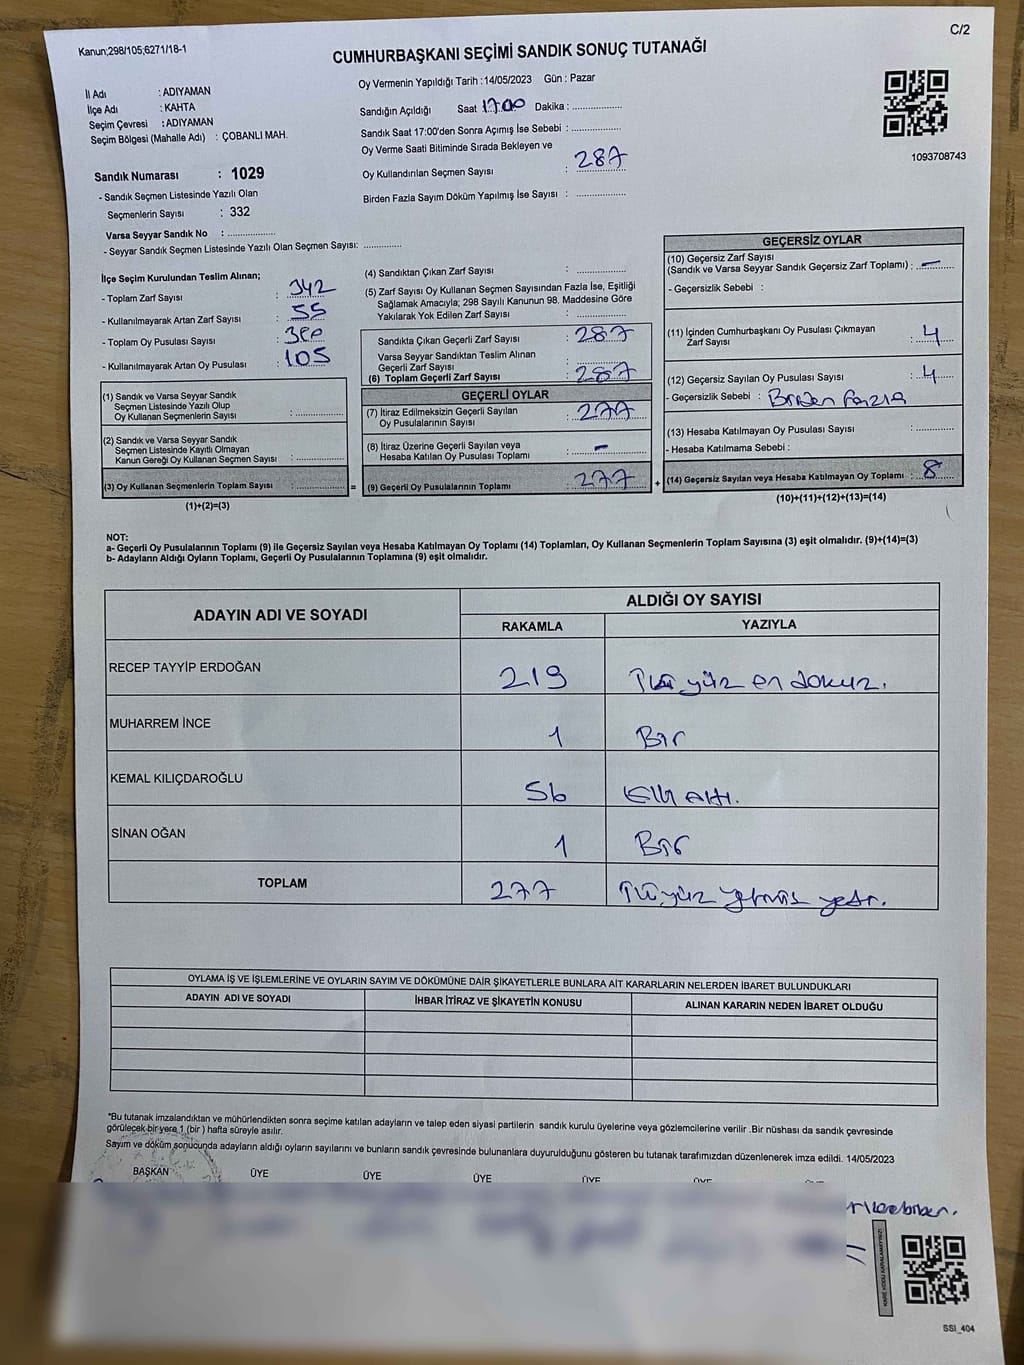 Kanun;298/105;6271/18-1
C/2
CUMHURBAŞKANI SEÇİMİ SANDIK SONUÇ TUTANAĞI
İl Adı : ADIYAMAN
İlçe Adı : KAHTA
Seçim Çevresi : ADIYAMAN
Seçim Bölgesi (Mahalle Adı) : ÇOBANLI MAH.
Sandık Numarası : 1029
- Sandık Seçmen Listesinde Yazılı Olan
Seçmenlerin Sayısı : 332
Varsa Seyyar Sandık No : ..................
- Seyyar Sandık Seçmen Listesinde Yazılı Olan Seçmen Sayısı: ..............
Oy Vermenin Yapıldığı Tarih :14/05/2023 Gün : Pazar
Sandığın Açıldığı Saat 17.00 Dakika : ..................
Sandık Saat 17:00'den Sonra Açımış İse Sebebi : ..................
Oy Verme Saati Bitiminde Sırada Bekleyen ve
Oy Kullandırılan Seçmen Sayısı : 287
Birden Fazla Sayım Döküm Yapılmış İse Sayısı : ..................
1093708743
İlçe Seçim Kurulundan Teslim Alınan;
- Toplam Zarf Sayısı : 342
- Kullanılmayarak Artan Zarf Sayısı : 55
- Toplam Oy Pusulası Sayısı :
- Kullanılmayarak Artan Oy Pusulası : 105
(1) Sandık ve Varsa Seyyar Sandık
Seçmen Listesinde Yazılı Olup
Oy Kullanan Seçmenlerin Sayısı : ..................
(2) Sandık ve Varsa Seyyar Sandık
Seçmen Listesinde Kayıtlı Olmayan
Kanun Gereği Oy Kullanan Seçmen Sayısı : ..................
(3) Oy Kullanan Seçmenlerin Toplam Sayısı : .................. =
(1)+(2)=(3)
(4) Sandıktan Çıkan Zarf Sayısı : ..................
(5) Zarf Sayısı Oy Kullanan Seçmen Sayısından Fazla İse, Eşitliği
Sağlamak Amacıyla; 298 Sayılı Kanunun 98. Maddesine Göre
Yakılarak Yok Edilen Zarf Sayısı : ..................
Sandıkta Çıkan Geçerli Zarf Sayısı : 287
Varsa Seyyar Sandıktan Teslim Alınan
Geçerli Zarf Sayısı
(6) Toplam Geçerli Zarf Sayısı : 287
GEÇERLİ OYLAR
(7) İtiraz Edilmeksizin Geçerli Sayılan
Oy Pusulalarının Sayısı : 277
(8) İtiraz Üzerine Geçerli Sayılan veya
Hesaba Katılan Oy Pusulası Toplamı : -
(9) Geçerli Oy Pusulalarının Toplamı : 277 +
GEÇERSİZ OYLAR
(10) Geçersiz Zarf Sayısı
(Sandık ve Varsa Seyyar Sandık Geçersiz Zarf Toplamı) : -
- Geçersizlik Sebebi :
(11) İçinden Cumhurbaşkanı Oy Pusulası Çıkmayan
Zarf Sayısı : 4
(12) Geçersiz Sayılan Oy Pusulası Sayısı : 4
- Geçersizlik Sebebi : Birden Fazla
(13) Hesaba Katılmayan Oy Pusulası Sayısı : ..............
- Hesaba Katılmama Sebebi :
(14) Geçersiz Sayılan veya Hesaba Katılmayan Oy Toplamı : 8
(10)+(11)+(12)+(13)=(14)
NOT:
a- Geçerli Oy Pusulalarının Toplamı (9) ile Geçersiz Sayılan veya Hesaba Katılmayan Oy Toplamı (14) Toplamları, Oy Kullanan Seçmenlerin Toplam Sayısına (3) eşit olmalıdır. (9)+(14)=(3)
b- Adayların Aldığı Oyların Toplamı, Geçerli Oy Pusulalarının Toplamına (9) eşit olmalıdır.
ADAYIN ADI VE SOYADI
ALDIĞI OY SAYISI
RAKAMLA YAZIYLA
RECEP TAYYİP ERDOĞAN 219 İki yüz on dokuz.
MUHARREM İNCE 1 Bir
KEMAL KILIÇDAROĞLU 56 Elli Altı.
SİNAN OĞAN 1 Bir
TOPLAM 277 İki yüz yetmiş yedi.
OYLAMA İŞ VE İŞLEMLERİNE VE OYLARIN SAYIM VE DÖKÜMÜNE DAİR ŞİKAYETLERLE BUNLARA AİT KARARLARIN NELERDEN İBARET BULUNDUKLARI
ADAYIN ADI VE SOYADI İHBAR İTİRAZ VE ŞİKAYETİN KONUSU ALINAN KARARIN NEDEN İBARET OLDUĞU
*Bu tutanak imzalandıktan ve mühürlendikten sonra seçime katılan adayların ve talep eden siyasi partilerin sandık kurulu üyelerine veya gözlemcilerine verilir .Bir nüshası da sandık çevresinde
görülecek bir yere 1 (bir ) hafta süreyle asılır.
Sayım ve döküm sonucunda adayların aldığı oyların sayılarını ve bunların sandık çevresinde bulunanlara duyurulduğunu gösteren bu tutanak tarafımızdan düzenlenerek imza edildi. 14/05/2023
BAŞKAN ÜYE ÜYE ÜYE ÜYE ÜYE
SSİ_404